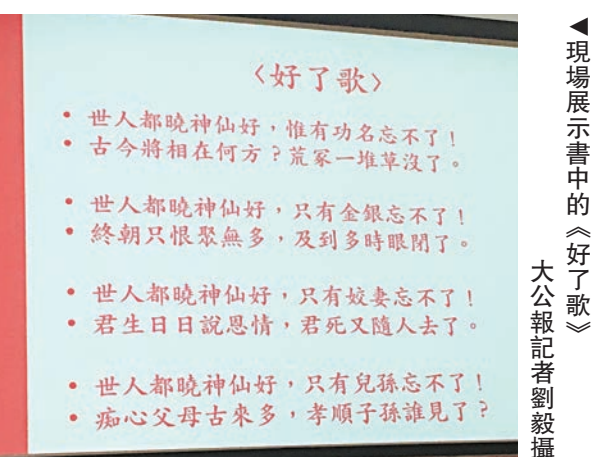 〈好了歌〉
• 世人都曉神仙好，惟有功名忘不了！
• 古今將相在何方？荒冢一堆草沒了。
• 世人都曉神仙好，只有金銀忘不了！
• 終朝只恨聚無多，及到多時眼閉了。
• 世人都曉神仙好，只有姣妻忘不了！
• 君生日日說恩情，君死又隨人去了。
• 世人都曉神仙好，只有兒孫忘不了！
• 痴心父母古來多，孝順子孫誰見了？
◀現場展示書中的《好了歌》
大公報記者劉毅攝